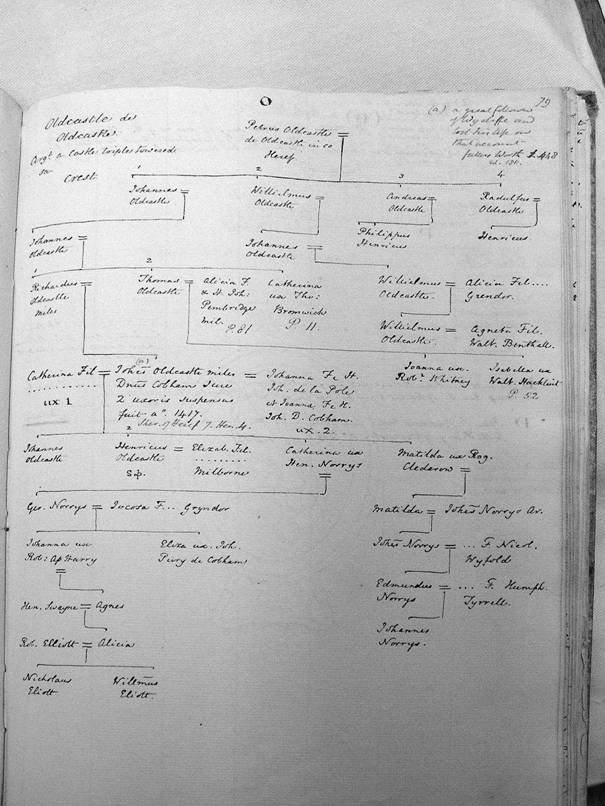 O
79
(a) a great follower
of Wycliffe and
lost his life on
that account
Fullers Worth
Oldcastle de
Oldcastle
Argt a Castle triple towered
sa
Crest
Petrus Oldcastle =
de Oldcastle in co
Heref
1 2 3 4
Johannes =
Oldcastle
Willielmus =
Oldcastle
Andreas =
Oldcastle
Radulfus =
Oldcastle
Philippus
Henricus
Henricus
Johannes =
Oldcastle
Johannes =
Oldcastle
1 2
Richardus =
Oldcastle
Miles
Thomas =
Oldcastle
Alicia F.
& H. Joh:
Pembridge
Mil.
P. 81
Catherina
ux Tho:
Bromwich
P. 11.
Willielmus =
Oldcastle.
Alicia Fil....
Grendor.
Willielmus =
Oldcastle.
Agneta Fil.
Walt. Benthall.
Joanna ux.
Robti Whitney
Isabella ux
Walt. Hackluit
P. 52.
Catherina Fil =
. . . . . . . . . .
ux 1
(a)
Johes Oldcastle miles =
Dnus Cobham Jure
2 uxoris Suspensus
fuit ao. 1417.
Sher. of Heref 7. Hen. 4.
Johanna F. H.
Joh. de la Pole
et Joanna F & H.
Joh. D. Cobham.
ux. 2.
2
Johannes
Oldcastle
Henricus =
Oldcastle
S.p.
Elizab. Fil.
. . . . . . . .
Milborne
Catherina ux
Hen. Norrys
=
Matilda ux Rog.
Clederow =
Geo. Norrys = Jocosa F... Gryndor
Matilda = Johes Norrys Ar.
Johanna ux
Rob: Ap Harry
=
Eliza ux. Joh.
Pury de Cobham
Johes Norrys = ... F. Nicol.
Wyfold
Hen. Swayne = Agnes
Edmundus =
Norrys
... F. Humph.
Tyrrell.
Rob. Elliott = Alicia
Johannes
Norrys.
Nicholaus
Eliott
Willmus
Eliott.